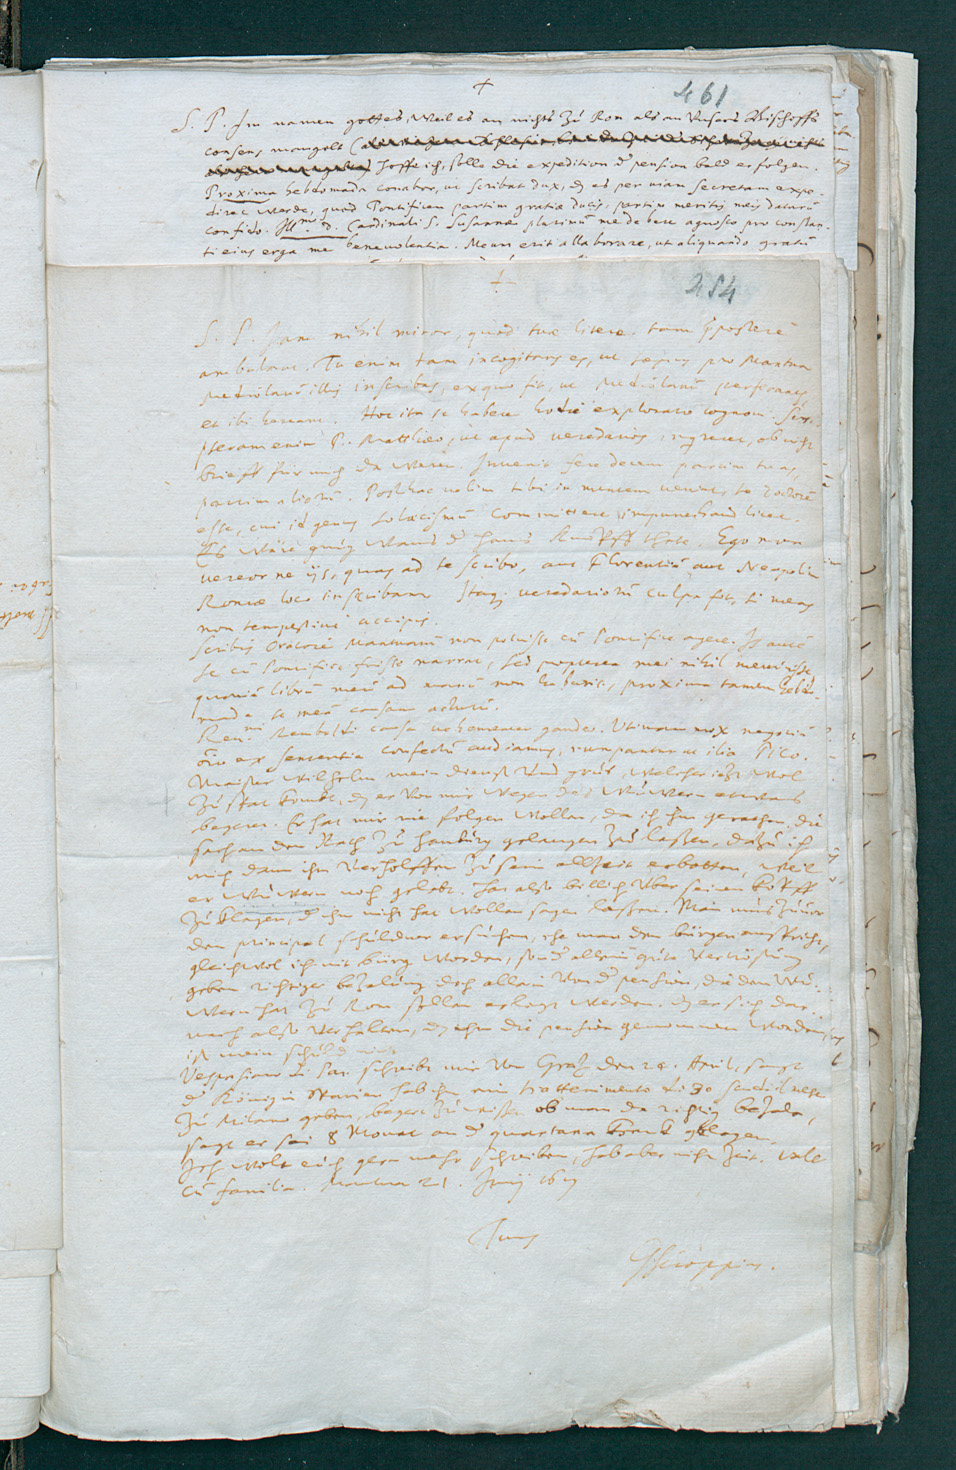 +
461
S. P. Im namen gottes, Weil es an nichts zu Rom als an Unsers Bischoffs
consens mangelt
hoffe ich, solle die expedition d pension bald erfolgen.
Proxima hebdomada conabor, ut scribat Dux, dz es per uiam secretam expe-
dirt werde, quod Pontificem partim gratiæ Ducis, partim meritis meis daturũ
confido. Ill.mo D. Cardinali S. Susannæ plurimũ me debere agnosco pro constan-
ti eius erga me beneuolentia. Meum erit allaborare, ut aliquando gratũ
+
454
S. P. Jam nihil miror, quod tuæ literæ tam præposterè
ambulant. Tu enim tam incogitans es, ut sæpius pro Mantua
Mediolanũ illis inscribas, ex quo fit, ut Mediolanũ perferantur
et ibi hæreant. Hoc ita se habere hodie explorato cognoui.
pseram enim P. Matthæo, ut apud ueredarios inquireret, ob nicht
brieff für mich da weren. Inuenit fere decem partim tuas,
partim aliorũ. Posthac uelim tibi in mentem ueniat, te Doctorẽ
esse, cui id genus solœcismũ committere impune haud licet.
Es wäre gnug wanns d Hans thäte. Ego non
uereor ne ijs, quas ad te scribo, aut Florentiã aut Neapolim
Romæ loco inscribam. Itaq. ueredariorũ culpa fit, si meas
non tempestiue accipis.
Scribis Oratorẽ Mantuanũ non potuisse cũ Pontifice agere. Is autẽ
se cũ Pontifice fuisse narrat, sed propterea mei nihil meminisse
quoniã librũ meũ ad manũ non habuerit, proxima tamen hebdo-
mada se meã causam acturũ.
Reu.mi Remboldi causa uehementer gaudeo. Utinam mox negotiũ
oĩno ex sententia confectũ audiamus, rumpantur ut ilia Pico.
Maister Wilhelm mein dienst vnd grus, Welcher ietz wol
zu spat kombt, dz er von mir wegen des Wuwern etwas
begeret. Er hat mir nie folgen wollen, da ich ihm gerathen, die
sach an den Rath zu Hamburg gelangen zu lassen, dazu ich
mich dann ihm verholffen zu sein allzeit erbotten, weil
er Wuwern noch gelebt. Hat also billich vber seinen kopff
zu klagen, d ihm nicht hat wollen sagen lassen. Man mus zuuor
den principal schuldner ersuchen, ehe man den bürgen anspricht,
gleichwol ich nit bürg worden, sond allein gute vertröstung
geben richtiger bezalung doch allein von d pension, die dem Wu-
wern hat zu Rom sollen erlegt werden. dz er sich dar-
nach also verhalten, dz ihm die pension genommen worden,
ist mein schuld nit.
Vespasiano di schreibt mir von Gratz den 28. April, sagt
d König in Spanien hab ihm ein trattenimento di 30 scudi il mese
zu Milano geben, begert zu wissen ob man da richtig bezale,
sagt er sei 8 Monat an d quartana kranck gelegen.
Ich wolt euch gern mehr schreiben, hab aber nicht zeit. Vale
cũ familia. Mantua 21. Junij 1611
Tuus
GScioppius.